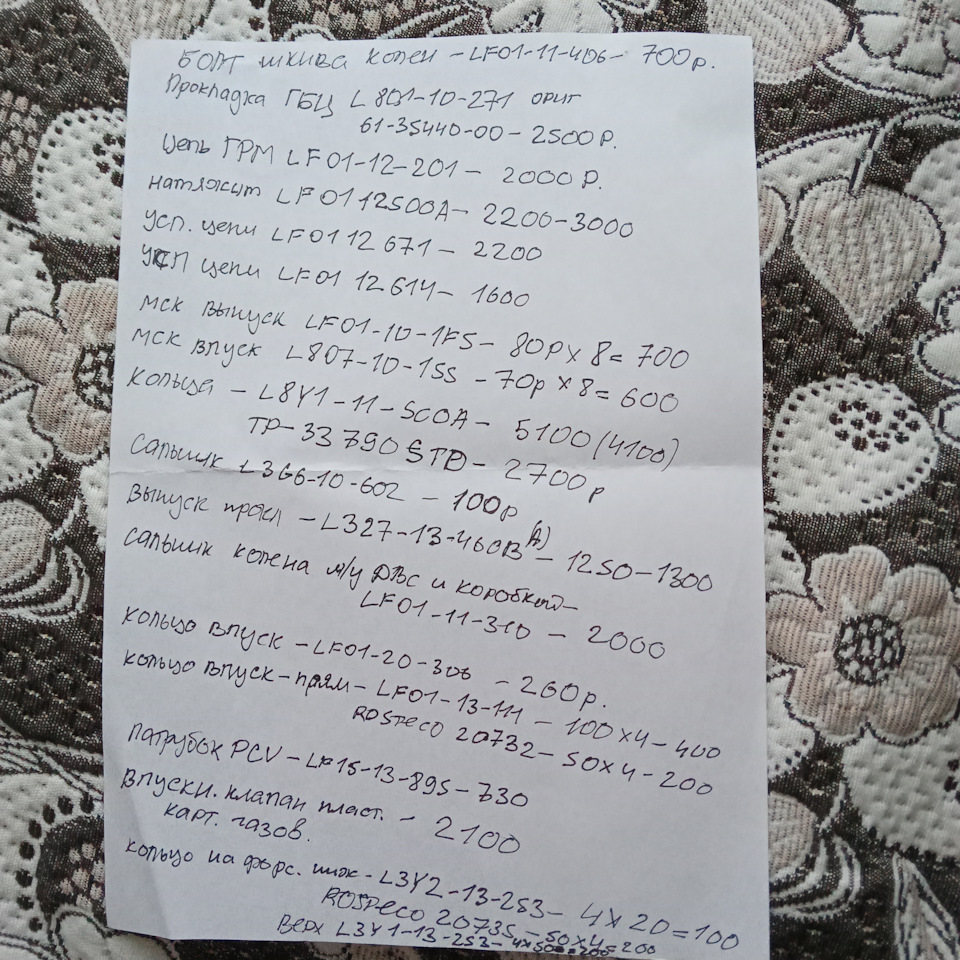 болт шкива колен - LF01-11-406- 700р.
Прокладка ГБЦ L801-10-271 ориг
61-35440-00 - 2500р.
Цепь ГРМ LF01-12-201 - 2000р.
натяжит LF0112500A - 2200-3000
усп. цепи LF0112671 - 2200
усп цепи LF01 12614 - 1600
мск выпуск LF01-10-1F5 - 80р x 8 = 700
мск впуск L807-10-155 - 70р x 8 = 600
кольца - L8Y1-11-SC0A - 5100 (4100)
TP-33790 STD - 2700р
сальник L3G6-10-602 - 100р
выпуск прокл - L327-13-460B (A) - 1250-1300
сальник колена м/у ДВС и коробкой -
LF01-11-310 - 2000
кольцо впуск - LF01-20-306 - 260р.
кольцо впуск-прям - LF01-13-111 - 100x4 - 400
ROSPECO 20732 - 50x4 - 200
патрубок PCV - LF15-13-895 - 730
впускн. клапан пласт. - 2100
карт. газов.
кольцо на форс. ниж - L3Y2-13-253 - 4x20=100
ROSPECO 20735 - 50x4=200
верх L3Y1-13-253 - 4x50=200